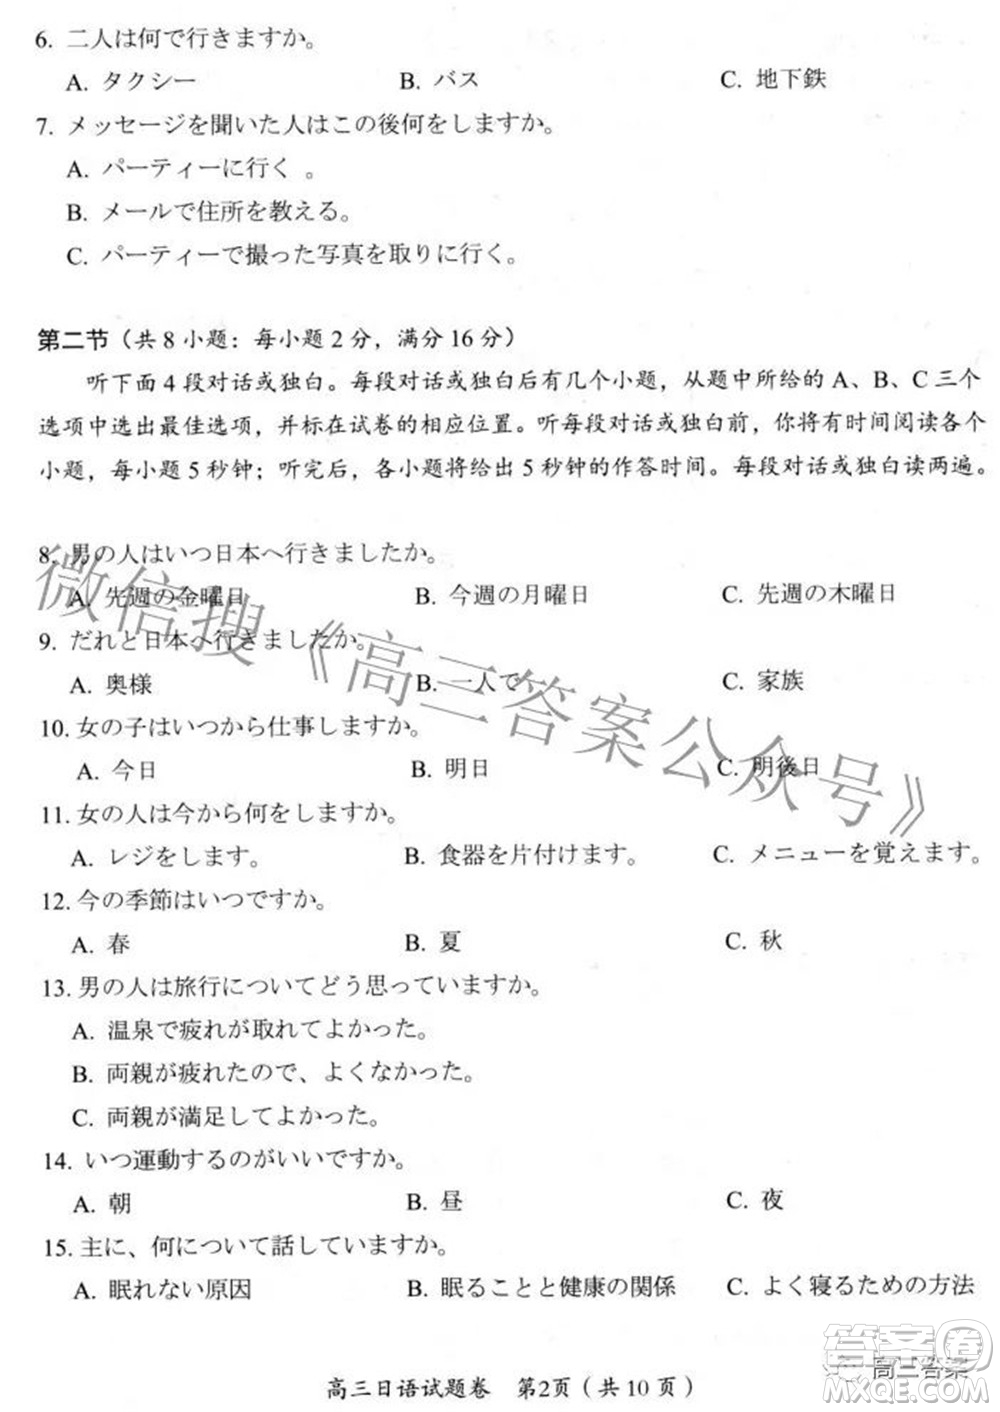 6. 二人は何で行きますか。
A. タクシー B. バス C. 地下鉄
7. メッセージを聞いた人はこの後何をしますか。
A. パーティーに行く 。
B. メールで住所を教える。
C. パーティーで撮った写真を取りに行く。
第二节（共 8 小题：每小题 2 分，满分 16 分）
听下面 4 段对话或独白。每段对话或独白后有几个小题，从题中所给的 A、B、C 三个
选项中选出最佳选项，并标在试卷的相应位置。听每段对话或独白前，你将有时间阅读各个
小题，每小题 5 秒钟；听完后，各小题将给出 5 秒钟的作答时间。每段对话或独白读两遍。
8. 男の人はいつ日本へ行きましたか。
A. 先週の金曜日 B. 今週の月曜日 C. 先週の木曜日
9. だれと日本へ行きましたか。
A. 奥様 B. 一人で C. 家族
10. 女の子はいつから仕事しますか。
A. 今日 B. 明日 C. 明後日
11. 女の人は今から何をしますか。
A. レジをします。 B. 食器を片付けます。 C. メニューを覚えます。
12. 今の季節はいつですか。
A. 春 B. 夏 C. 秋
13. 男の人は旅行についてどう思っていますか。
A. 温泉で疲れが取れてよかった。
B. 両親が疲れたので、よくなかった。
C. 両親が満足してよかった。
14. いつ運動するのがいいですか。
A. 朝 B. 昼 C. 夜
15. 主に、何について話していますか。
A. 眠れない原因 B. 眠ることと健康の関係 C. よく寝るための方法
高三日语试题卷 第2页（共 10 页）
微信搜《高三答案公众号》
高三答案
答案圈
MXQE.COM